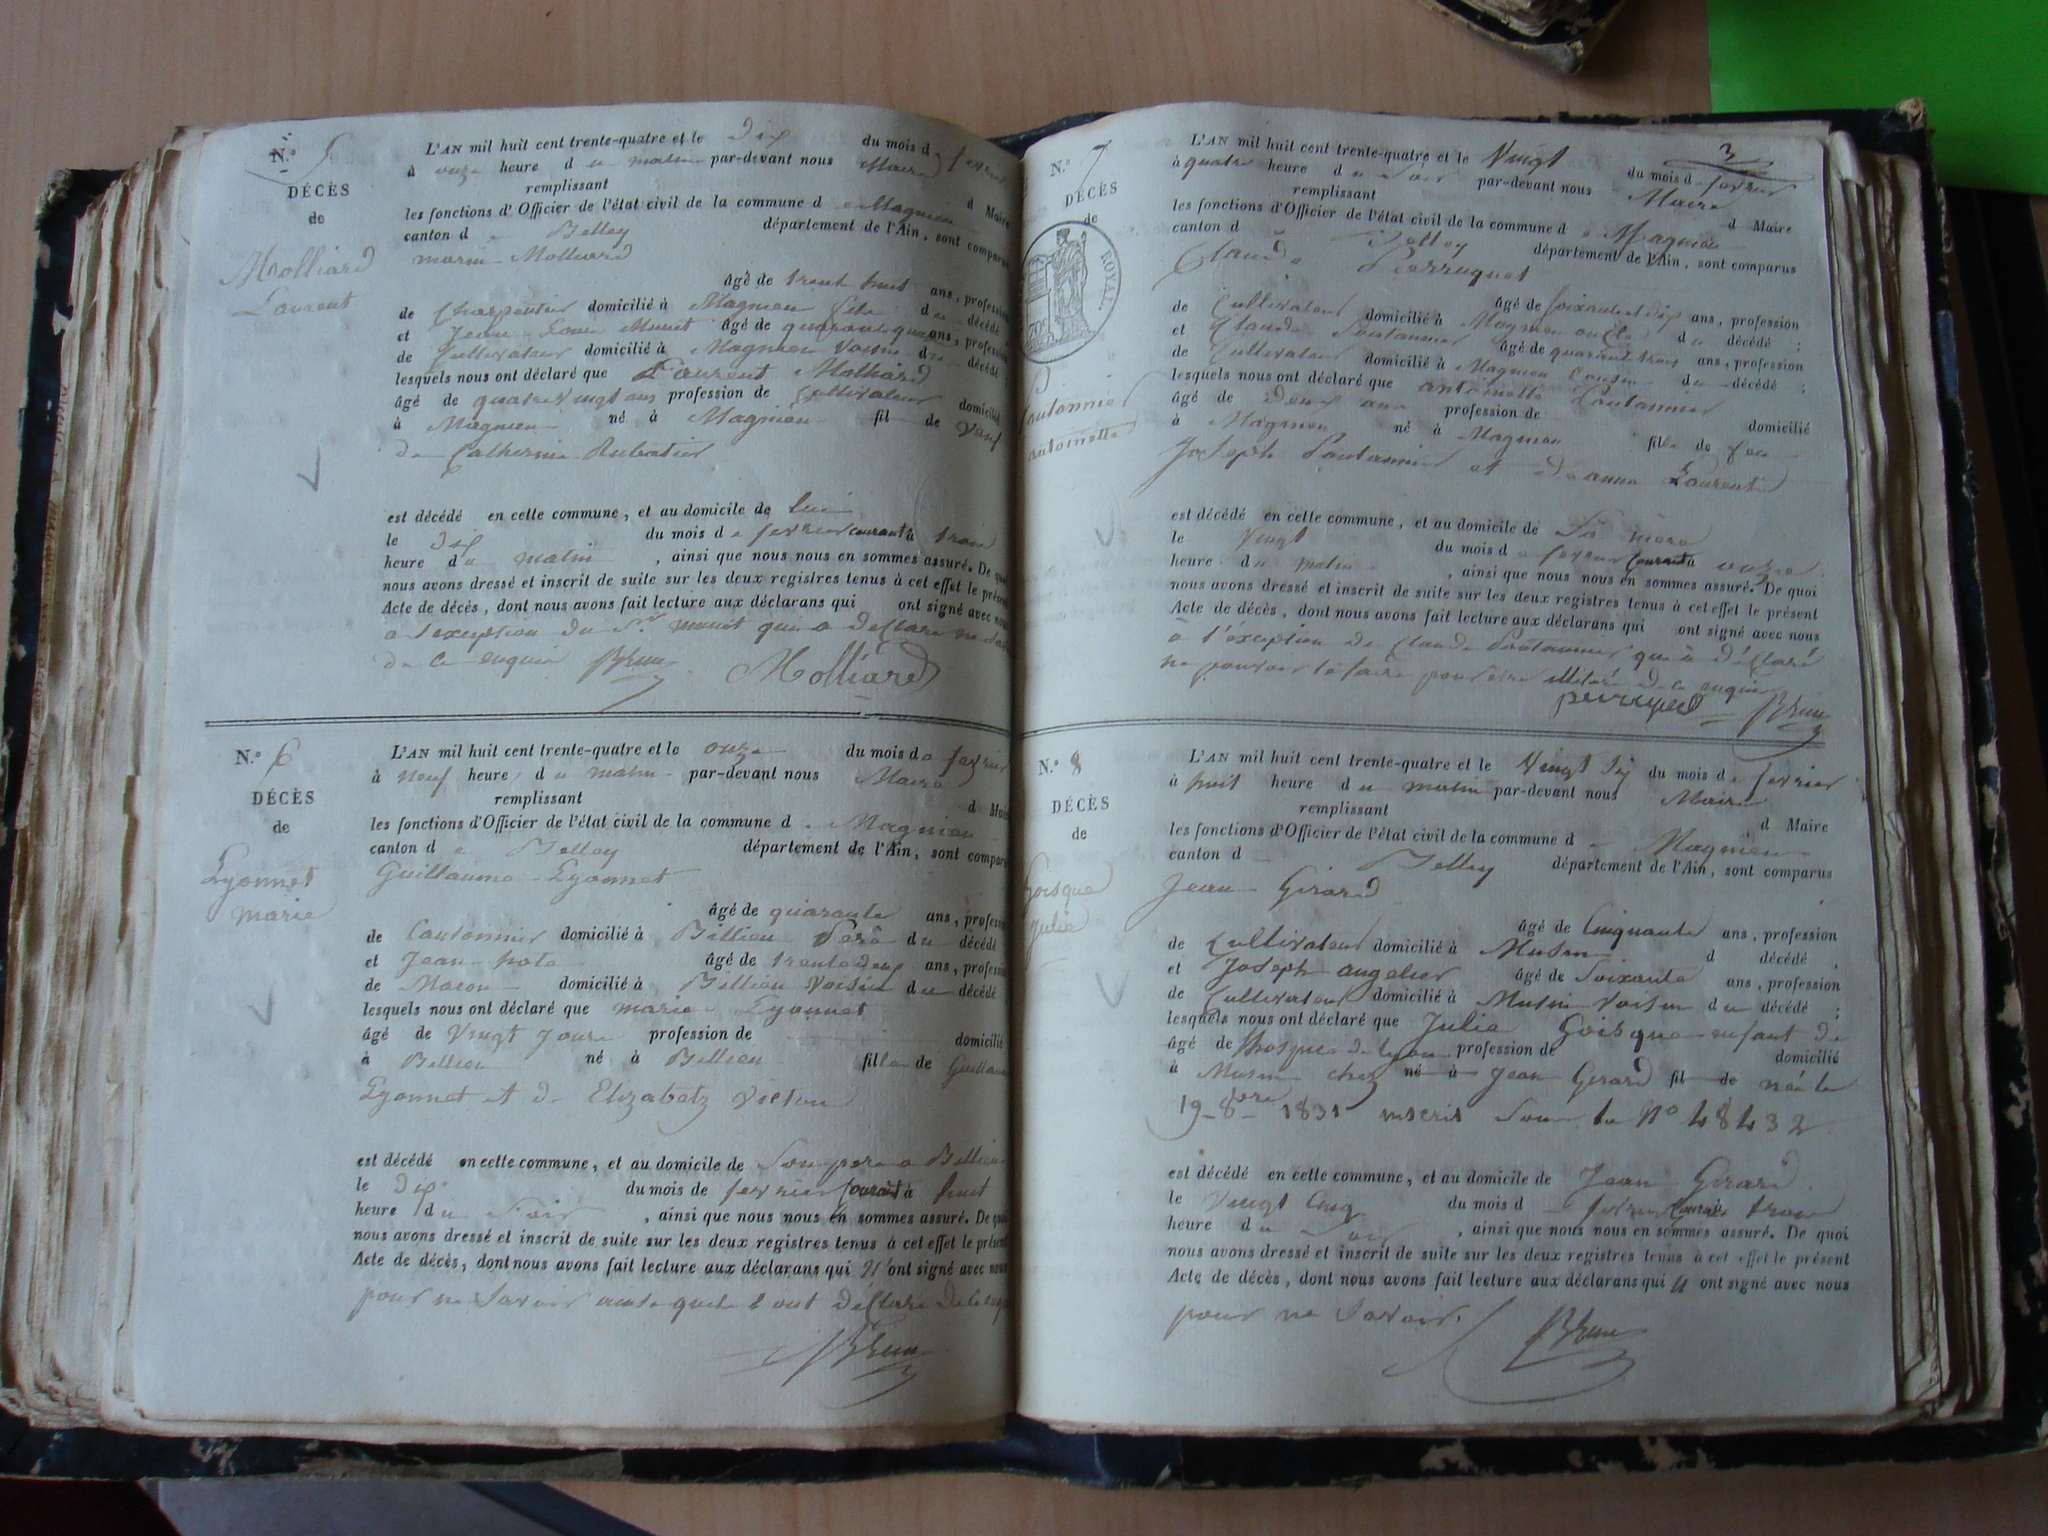 N.º 5
DÉCÈS
de
Molliard
Laurent
L'AN mil huit cent trente-quatre et le Dix du mois d fevrier
à onze heure du matin par-devant nous Maire
remplissant d Maire
les fonctions d'Officier de l'état civil de la commune de Magnieu
canton d Belley département de l'Ain, sont comparus
marin Molliard
âgé de trente huit ans, profession
de Charpentier domicilié à Magnieu fils du décédé
et Jean Louis Munet âgé de quarante quatre ans, profession
de Cultivateur domicilié à Magnieu voisin du décédé ;
lesquels nous ont déclaré que Laurent Molliard
âgé de quatrevingt ans profession de Cultivateur domicilié
à Magnieu né à Magnieu fil de veuf
de Catherine Rubatier
est décédé en cette commune, et au domicile de lui
le dix du mois de fevrier courant à trois
heure du matin , ainsi que nous nous en sommes assuré. De quoi
nous avons dressé et inscrit de suite sur les deux registres tenus à cet effet le présent
Acte de décès, dont nous avons fait lecture aux déclarans qui ont signé avec nous
a l'exception du Sr. munet qui a declaré ne
de ce enquis Brun Molliard
N.º 6
DÉCÈS
de
Lyonnet
marie
L'AN mil huit cent trente-quatre et le onze du mois de fevrier
à neuf heure du matin par-devant nous Maire
remplissant d Maire
les fonctions d'Officier de l'état civil de la commune d Magnieu
canton de Belley département de l'Ain, sont comparus
Guillaume Lyonnet
âgé de quarante ans, profession
de Cantonnier domicilié à Billieu Père du décédé
et Jean âgé de trente deux ans, profession
de Macon domicilié à Billieu voisin du décédé
lesquels nous ont déclaré que marie Lyonnet
âgé de vingt Jours profession de domicilié
à Billieu né à Billieu fille de Guillaume
Lyonnet et de Elizabetz
est décédé en cette commune, et au domicile de Son pere a Billieu
le dix du mois de fevrier courant à huit
heure du Soir , ainsi que nous nous en sommes assuré. De quoi
nous avons dressé et inscrit de suite sur les deux registres tenus à cet effet le présent
Acte de décès, dont nous avons fait lecture aux déclarans qui n'ont signé avec nous
pour ne Savoir l'ont declaré de ce enquis
Brun
3
N.º 7
DÉCÈS
de
ROYAL
70c
Poutannier
antoinette
L'AN mil huit cent trente-quatre et le Vingt du mois d fevrier
à quatre heure du Soir par-devant nous Maire
remplissant d Maire
les fonctions d'Officier de l'état civil de la commune de Magnieu
canton d Belley département de l'Ain, sont comparus
Claude Perruquet
âgé de soixante et dix ans, profession
de Cultivateur domicilié à Magnieu oncle du décédé ;
et Claude Poutannier âgé de quarante trois ans, profession
de Cultivateur domicilié à Magnieu Cousin du décédé ;
lesquels nous ont déclaré que antoinette Poutannier
âgé de Deux ans profession de domicilié
à Magnieu né à Magnieu fille de feu
Joseph Poutannier et de anne Laurent
est décédé en cette commune, et au domicile de Sa mere
le Vingt du mois de fevrier courant à onze
heure du matin , ainsi que nous nous en sommes assuré. De quoi
nous avons dressé et inscrit de suite sur les deux registres tenus à cet effet le présent
Acte de décès, dont nous avons fait lecture aux déclarans qui ont signé avec nous
à l'exception de Claude Poutannier qui à déclaré
ne pouvoir le faire pour être illitéré de ce enquis
perruquet Brun
N.º 8
DÉCÈS
de
Goisque
Julie
L'AN mil huit cent trente-quatre et le Vingt Six du mois de fevrier
à huit heure du matin par-devant nous Maire
remplissant d Maire
les fonctions d'Officier de l'état civil de la commune d Magnieu
canton d Belley département de l'Ain, sont comparus
Jean Girard
âgé de Cinquante ans, profession
de Cultivateur domicilié à Musin d décédé ,
et Joseph angelier âgé de Soixante ans, profession
de Cultivateur domicilié à Musin voisin du décédé ;
lesquels nous ont déclaré que Julie Goisque enfant de
âgé de lhospice de Lyon profession de domicilié
à Musin chez né à Jean Girard fil de née le
19 8bre 1831 inscris Sous le N° 48432
est décédé en cette commune, et au domicile de Jean Girard
le Vingt Cinq du mois d fevrier courant à trois
heure du Soir , ainsi que nous nous en sommes assuré. De quoi
nous avons dressé et inscrit de suite sur les deux registres tenus à cet effet le présent
Acte de décès, dont nous avons fait lecture aux déclarans qui n ont signé avec nous
pour ne Savoir. Brun